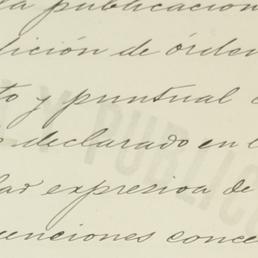 la publicacion
dición de órden
to y puntual
declarado en
lar expresiva de
venciones conce